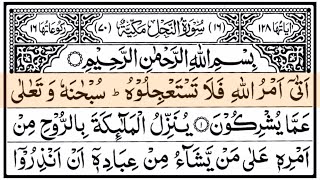 اٰیَاتُهَا ۱۲۸ (۱۶) سُوْرَةُ النَّحْلِ مَكِّیَّةٌ (۷۰) رُكُوْعَاتُهَا ۱۶
بِسْمِ اللّٰهِ الرَّحْمٰنِ الرَّحِیْمِ ۝
اَتٰۤی اَمْرُ اللّٰهِ فَلَا تَسْتَعْجِلُوْهُ ؕ سُبْحٰنَهٗ وَ تَعٰلٰی
عَمَّا یُشْرِكُوْنَ ۝ یُنَزِّلُ الْمَلٰٓىِٕكَةَ بِالرُّوْحِ مِنْ
اَمْرِهٖ عَلٰی مَنْ یَّشَآءُ مِنْ عِبَادِهٖۤ اَنْ اَنْذِرُوْۤا